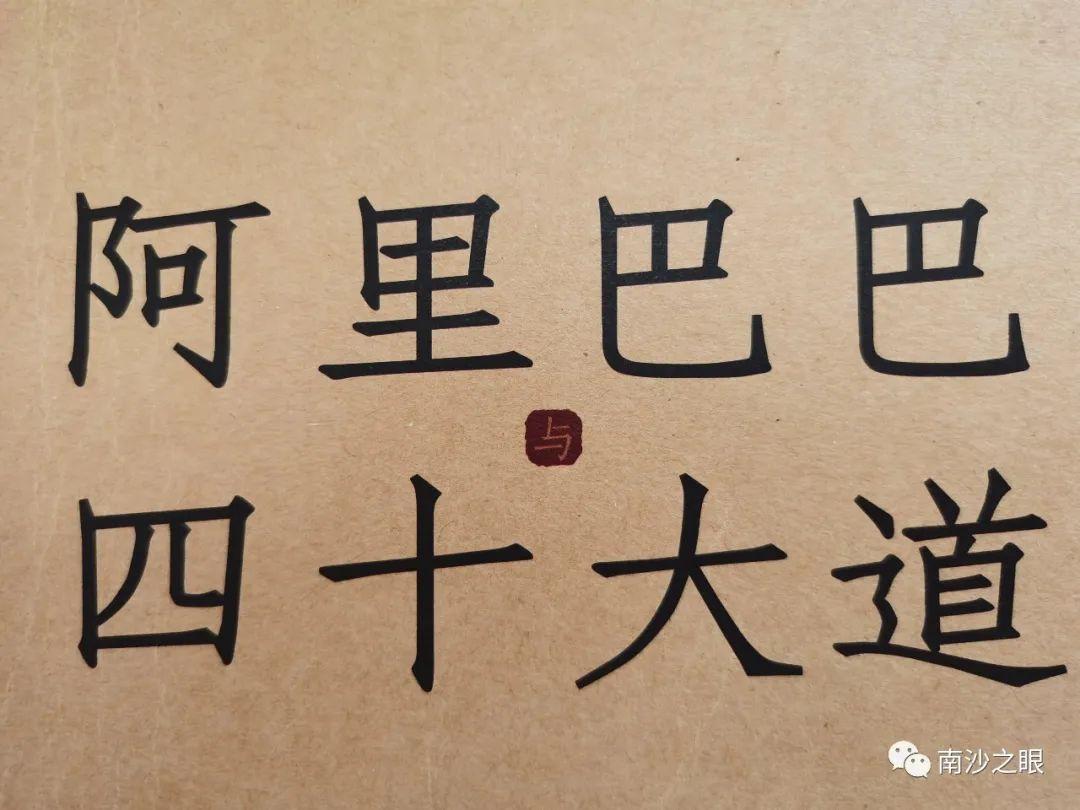 阿里巴巴
与
四十大道
南沙之眼